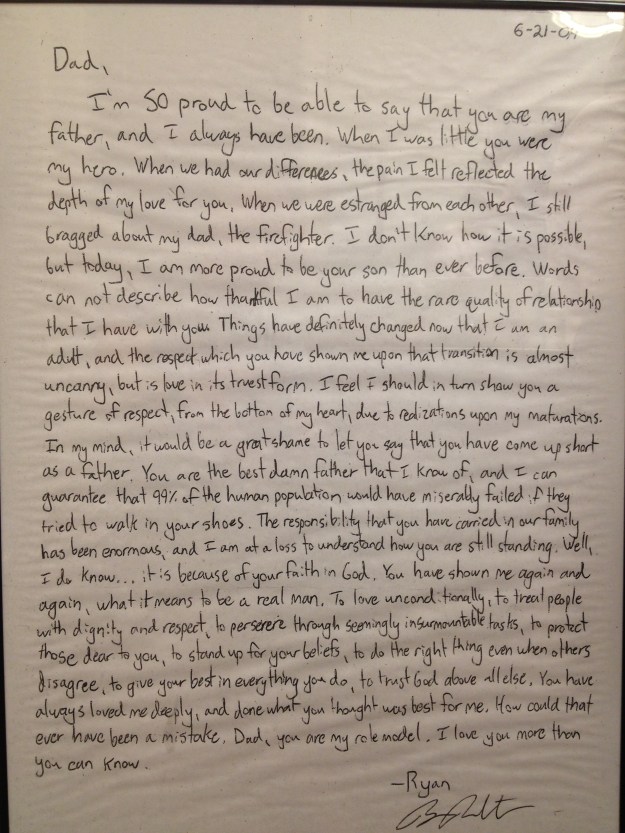 6-21-09
Dad,
I'm SO proud to be able to say that you are my
father, and I always have been. When I was little you were
my hero. When we had our differences, the pain I felt reflected the
depth of my love for you. When we were estranged from each other, I still
bragged about my dad, the firefighter. I don't know how it is possible,
but today, I am more proud to be your son than ever before. Words
can not describe how thankful I am to have the rare quality of relationship
that I have with you. Things have definitely changed now that I am an
adult, and the respect which you have shown me upon that transition is almost
uncanny, but is love in its truest form. I feel I should in turn show you a
gesture of respect, from the bottom of my heart, due to realizations upon my maturations.
In my mind, it would be a great shame to let you say that you have come up short
as a father. You are the best damn father that I know of, and I can
guarantee that 99% of the human population would have miserably failed if they
tried to walk in your shoes. The responsibility that you have carried in our family
has been enormous, and I am at a loss to understand how you are still standing. Well,
I do know... it is because of your faith in God. You have shown me again and
again, what it means to be a real man. To love unconditionally, to treat people
with dignity and respect, to persevere through seemingly insurmountable tasks, to protect
those dear to you, to stand up for your beliefs, to do the right thing even when others
disagree, to give your best in everything you do, to trust God above all else. You have
always loved me deeply, and done what you thought was best for me. How could that
ever have been a mistake. Dad, you are my role model. I love you more than
you can know.
-Ryan